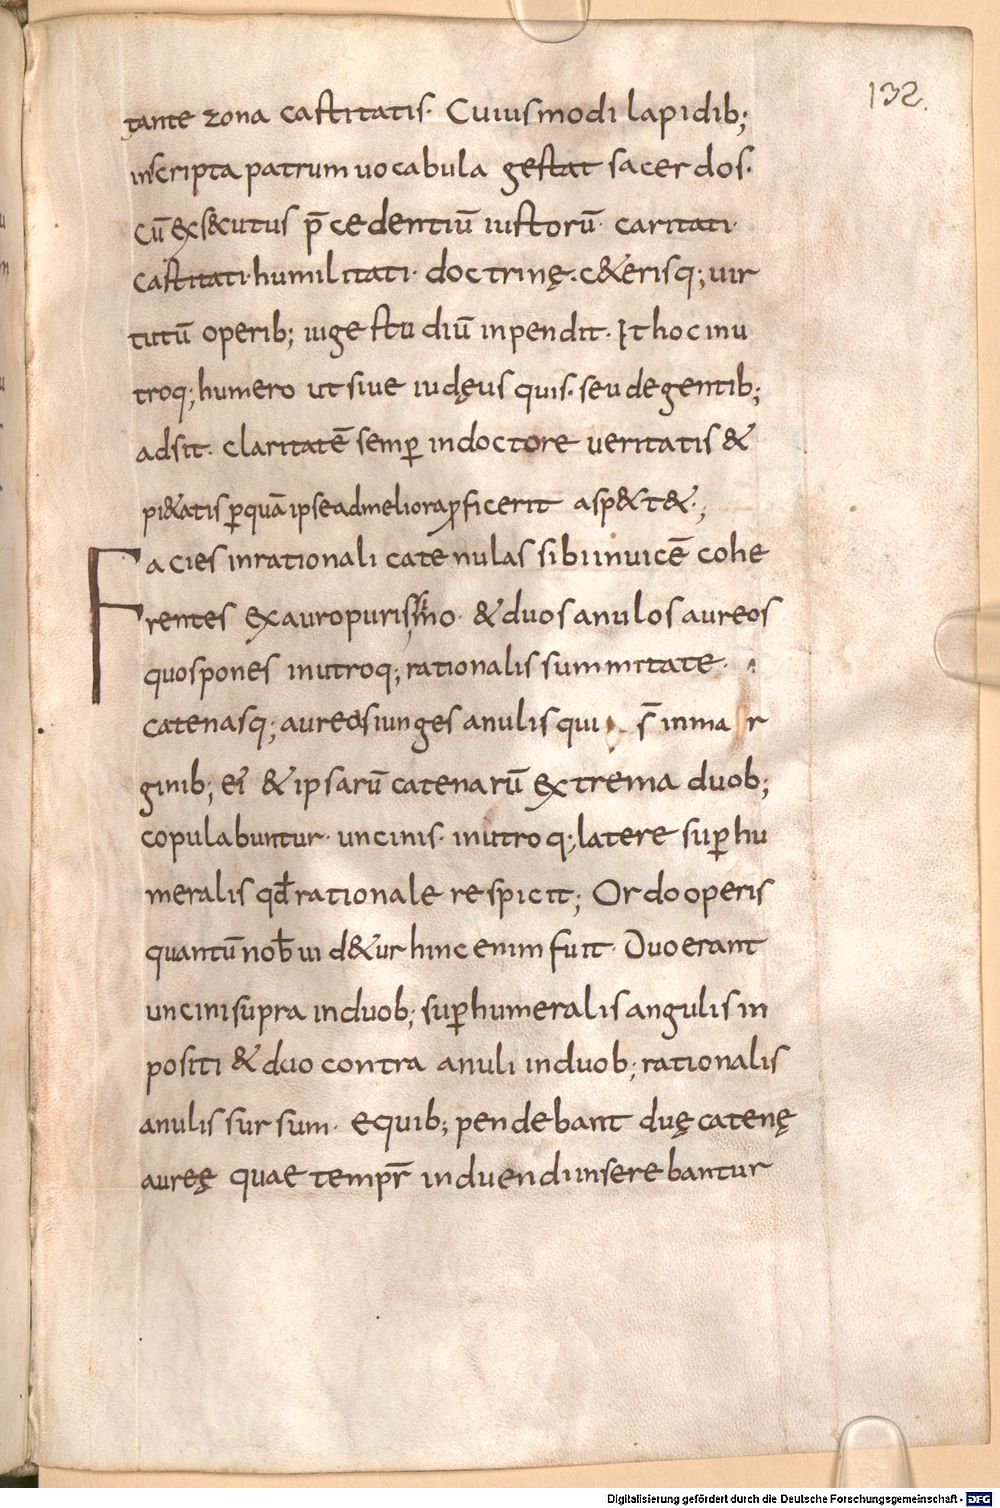 132.
tante zona castitatis· Cuiusmodi lapidib;
inscripta patrum uocabula gestat sacerdos·
Cū exsecutus p̄cedentiū iustorū· caritati·
castitati· humilitati· doctrinę· c&erisq; uir
tutū operib; iuge studiū inpendit· & hoc inu
troq; humero ut siue iudęus quis· seu de gentib;
adsit· claritatē semꝑ in doctore ueritatis &
pi&atis ꝑ quā ipse ad meliora ꝓficerit asp&t&·;
Facies in rationali catenulas sibi inuicē cohe
rentes ex auro purissimo· & duos anulos aureos
quos pones in utroq; rationalis summitate·
catenasq; aureas iunges anulis qui s̄ in mar
ginib; ei & ipsarū catenarū extrema duob;
copulabuntur uncinis· in utroq; latere suꝑhu
meralis qđ rationale respicit; Ordo operis
quantū nob̄ uid&ur hinc enim fuit· Duo erant
uncini supra in duob; suꝑhumeralis angulis in
positi & duo contra anuli in duob; rationalis
anulis sursum· e quib; pendebant duę catenę
aureę quae tempr̄ induendi inserebantur
Digitalisierung gefördert durch die Deutsche Forschungsgemeinschaft - DFG